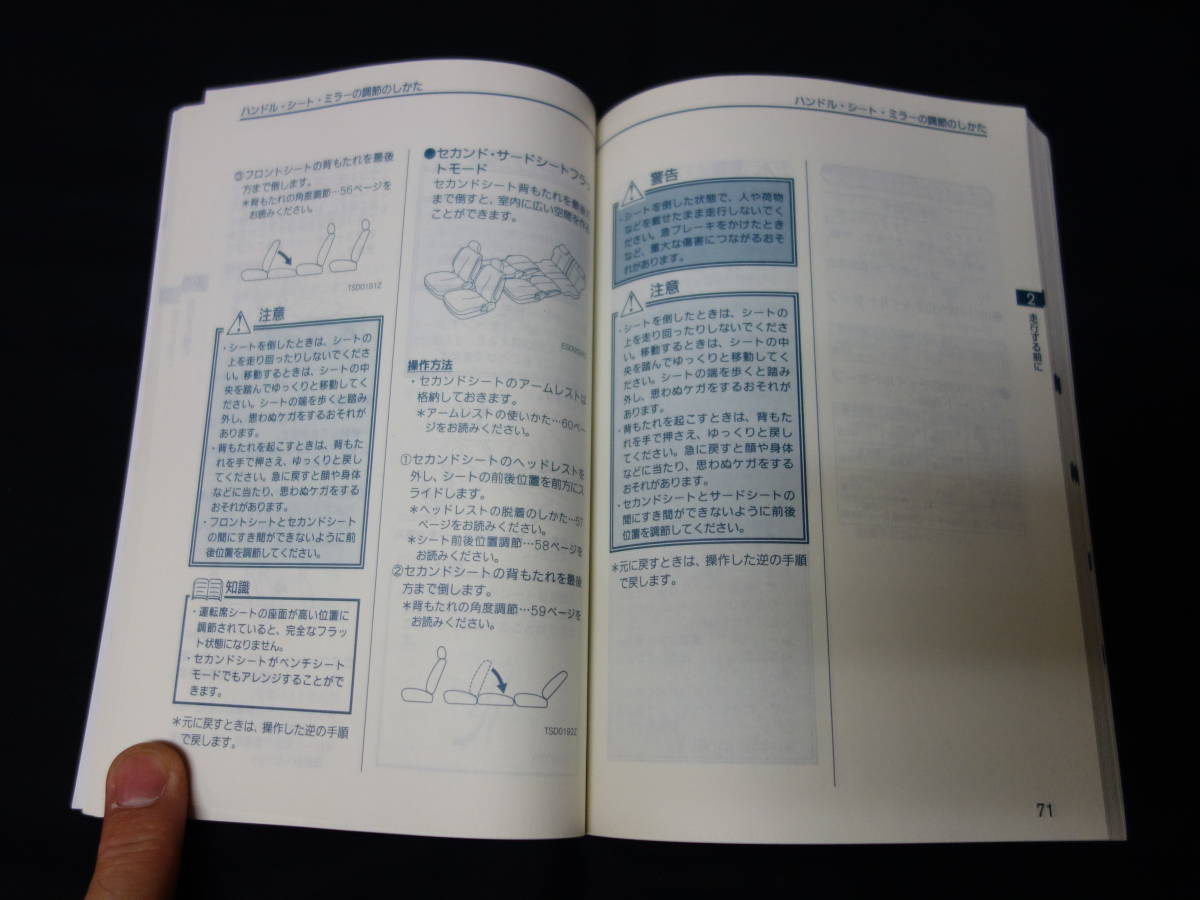 ハンドル・シート・ミラーの調節のしかた
③フロントシートの背もたれを最後
方まで倒します。
＊背もたれの角度調節…56ページを
お読みください。
TSD0191Z
注意
・シートを倒したときは、シートの
上を走り回ったりしないでくださ
い。移動するときは、シートの中
央を踏んでゆっくりと移動してく
ださい。シートの端を歩くと踏み
外し、思わぬケガをするおそれが
あります。
・背もたれを起こすときは、背もた
れを手で押さえ、ゆっくりと戻し
てください。急に戻すと顔や身体
などに当たり、思わぬケガをする
おそれがあります。
・フロントシートとセカンドシート
の間にすき間ができないように前
後位置を調節してください。
知識
・運転席シートの座面が高い位置に
調節されていると、完全なフラッ
ト状態になりません。
・セカンドシートがベンチシート
モードでもアレンジすることがで
きます。
＊元に戻すときは、操作した逆の手順
で戻します。
●セカンド・サードシートフラッ
トモード
セカンドシート背もたれを最後
まで倒すと、室内に広い空間を作る
ことができます。
操作方法
・セカンドシートのアームレストは
格納しておきます。
＊アームレストの使いかた…60ペー
ジをお読みください。
①セカンドシートのヘッドレストを
外し、シートの前後位置を前方にス
ライドします。
＊ヘッドレストの脱着のしかた…57
ページをお読みください。
＊シート前後位置調節…58ページを
お読みください。
②セカンドシートの背もたれを最後
方まで倒します。
＊背もたれの角度調節…59ページを
お読みください。
TSD0192Z
ハンドル・シート・ミラーの調節のしかた
警告
・シートを倒した状態で、人や荷物
などを載せたまま走行しないでく
ださい。急ブレーキをかけたとき
など、重大な傷害につながるおそ
れがあります。
注意
・シートを倒したときは、シートの
上を走り回ったりしないでくださ
い。移動するときは、シートの中
央を踏んでゆっくりと移動してく
ださい。シートの端を歩くと踏み
外し、思わぬケガをするおそれが
あります。
・背もたれを起こすときは、背もた
れを手で押さえ、ゆっくりと戻し
てください。急に戻すと顔や身体
などに当たり、思わぬケガをする
おそれがあります。
・セカンドシートとサードシートの
間にすき間ができないように前後
位置を調節してください。
＊元に戻すときは、操作した逆の手順
で戻します。
2
走行する前に
71